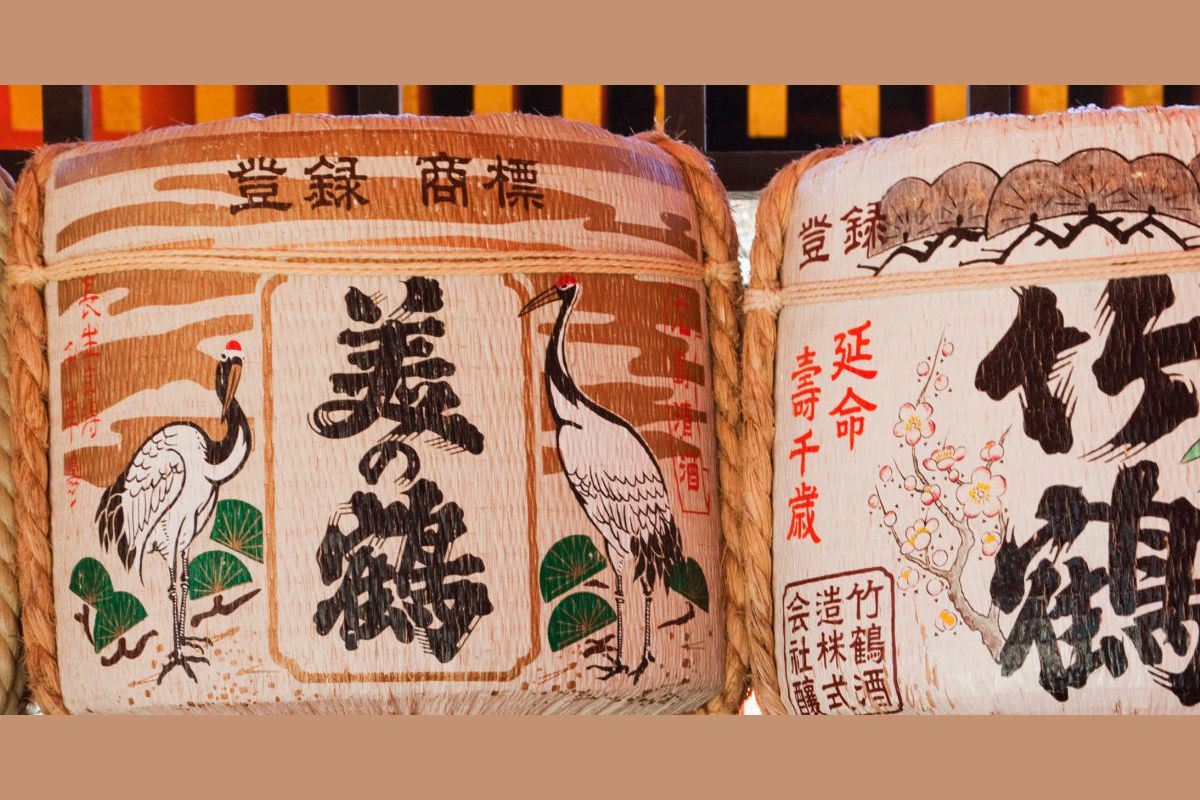 登録 商標
美の鶴
登録
竹鶴
延命
壽千歳
竹鶴酒
造株式
会社醸